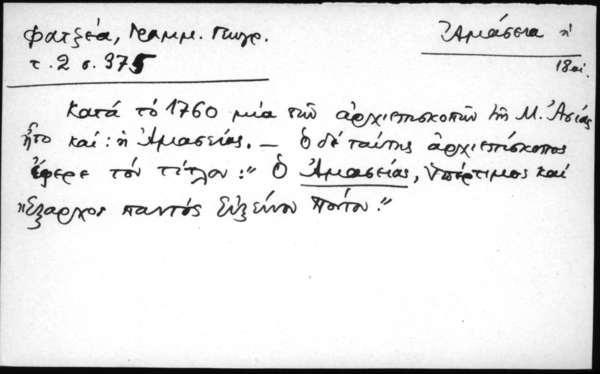 Φατζέα, Γραμμ. Γεωγρ.
τ. 2 σ. 375
Ἀμάσεια ἡ
18 αἰ.
Κατά τό 1760 μία τῶν ἀρχιεπισκοπῶν τῆς Μ. Ἀσίας
ἦτο καί: ἡ Ἀμασείας. — ὁ δέ ταύτης ἀρχιεπίσκοπος
ἔφερε τόν τίτλον: " Ὁ Ἀμασείας, ὑπέρτιμος καί
ἔξαρχος παντός Εὐξείνου Πόντου."